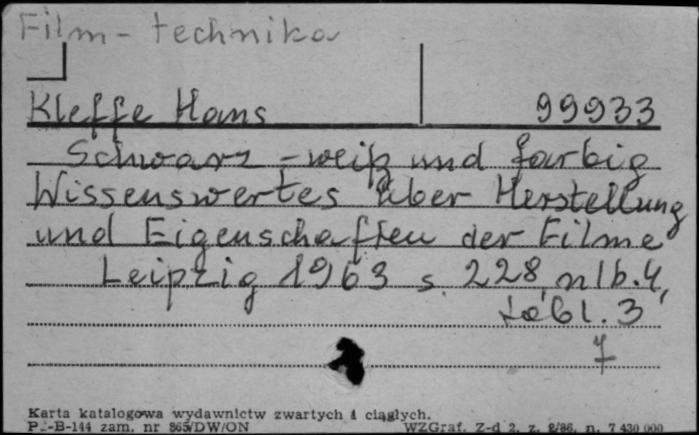 Film - technika
Kleffe Hans 99933
Schwarz - weiß und farbig
Wissenswertes über Herstellung
und Eigenschaften der Filme
Leipzig 1963 s. 228, nlb. 4,
tabl. 3
7
Karta katalogowa wydawnictw zwartych i ciągłych.
P.-B-144 zam. nr 865/DW/ON WZGraf. Z-d 2, z. 2/86, n. 7 430 000